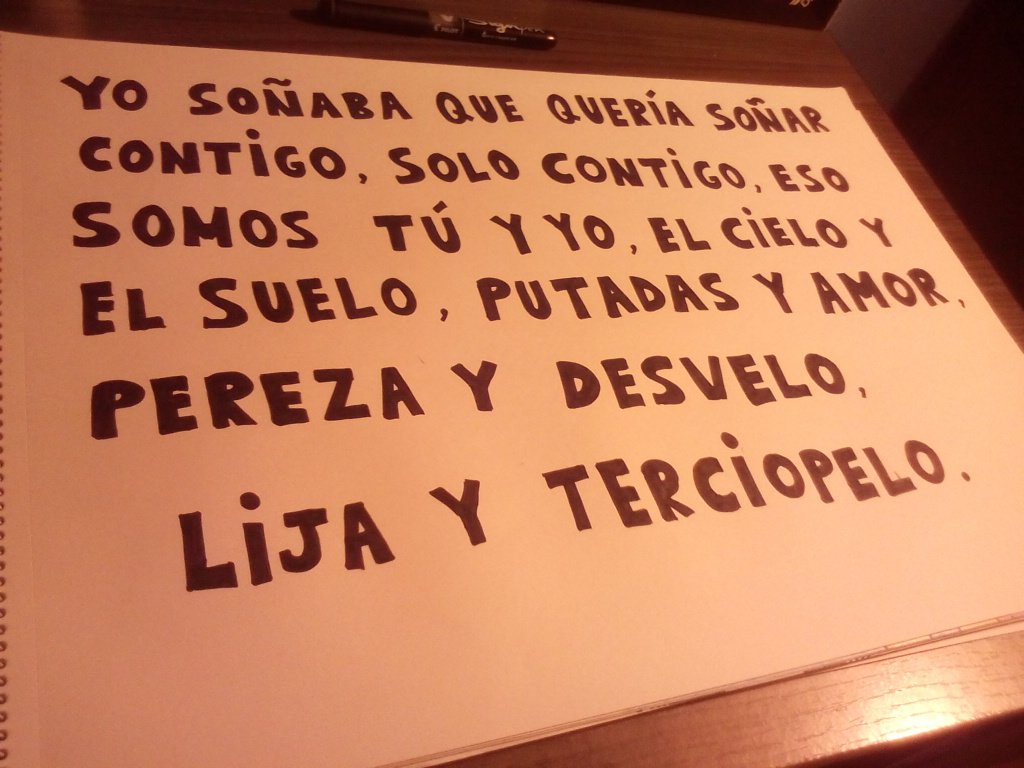 YO SOÑABA QUE QUERÍA SOÑAR
CONTIGO, SOLO CONTIGO, ESO
SOMOS TÚ Y YO, EL CIELO Y
EL SUELO, PUTADAS Y AMOR,
PEREZA Y DESVELO,
LIJA Y TERCIOPELO.